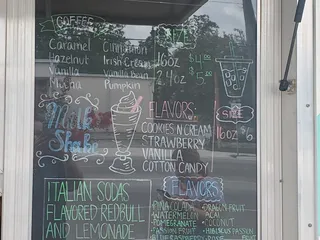 COFFEE
Caramel Cinnamon
Hazelnut Irish Cream
Vanilla Vanilla bean
SIZE
16oz $4.00
24oz $5
Milk
Shake
FLAVORS:
COOKIES N CREAM
STRAWBERRY
VANILLA
COTTON CANDY
SIZE
16oz $6
ITALIAN SODAS
FLAVORED REDBULL
AND LEMONADE
FLAVORS
PINA COLADA DRAGON FRUIT
WATERMELON ACAI
POMEGRANATE COCONUT
PASSION FRUIT HIBISCUS PASSION
BLUE RASPBERRY